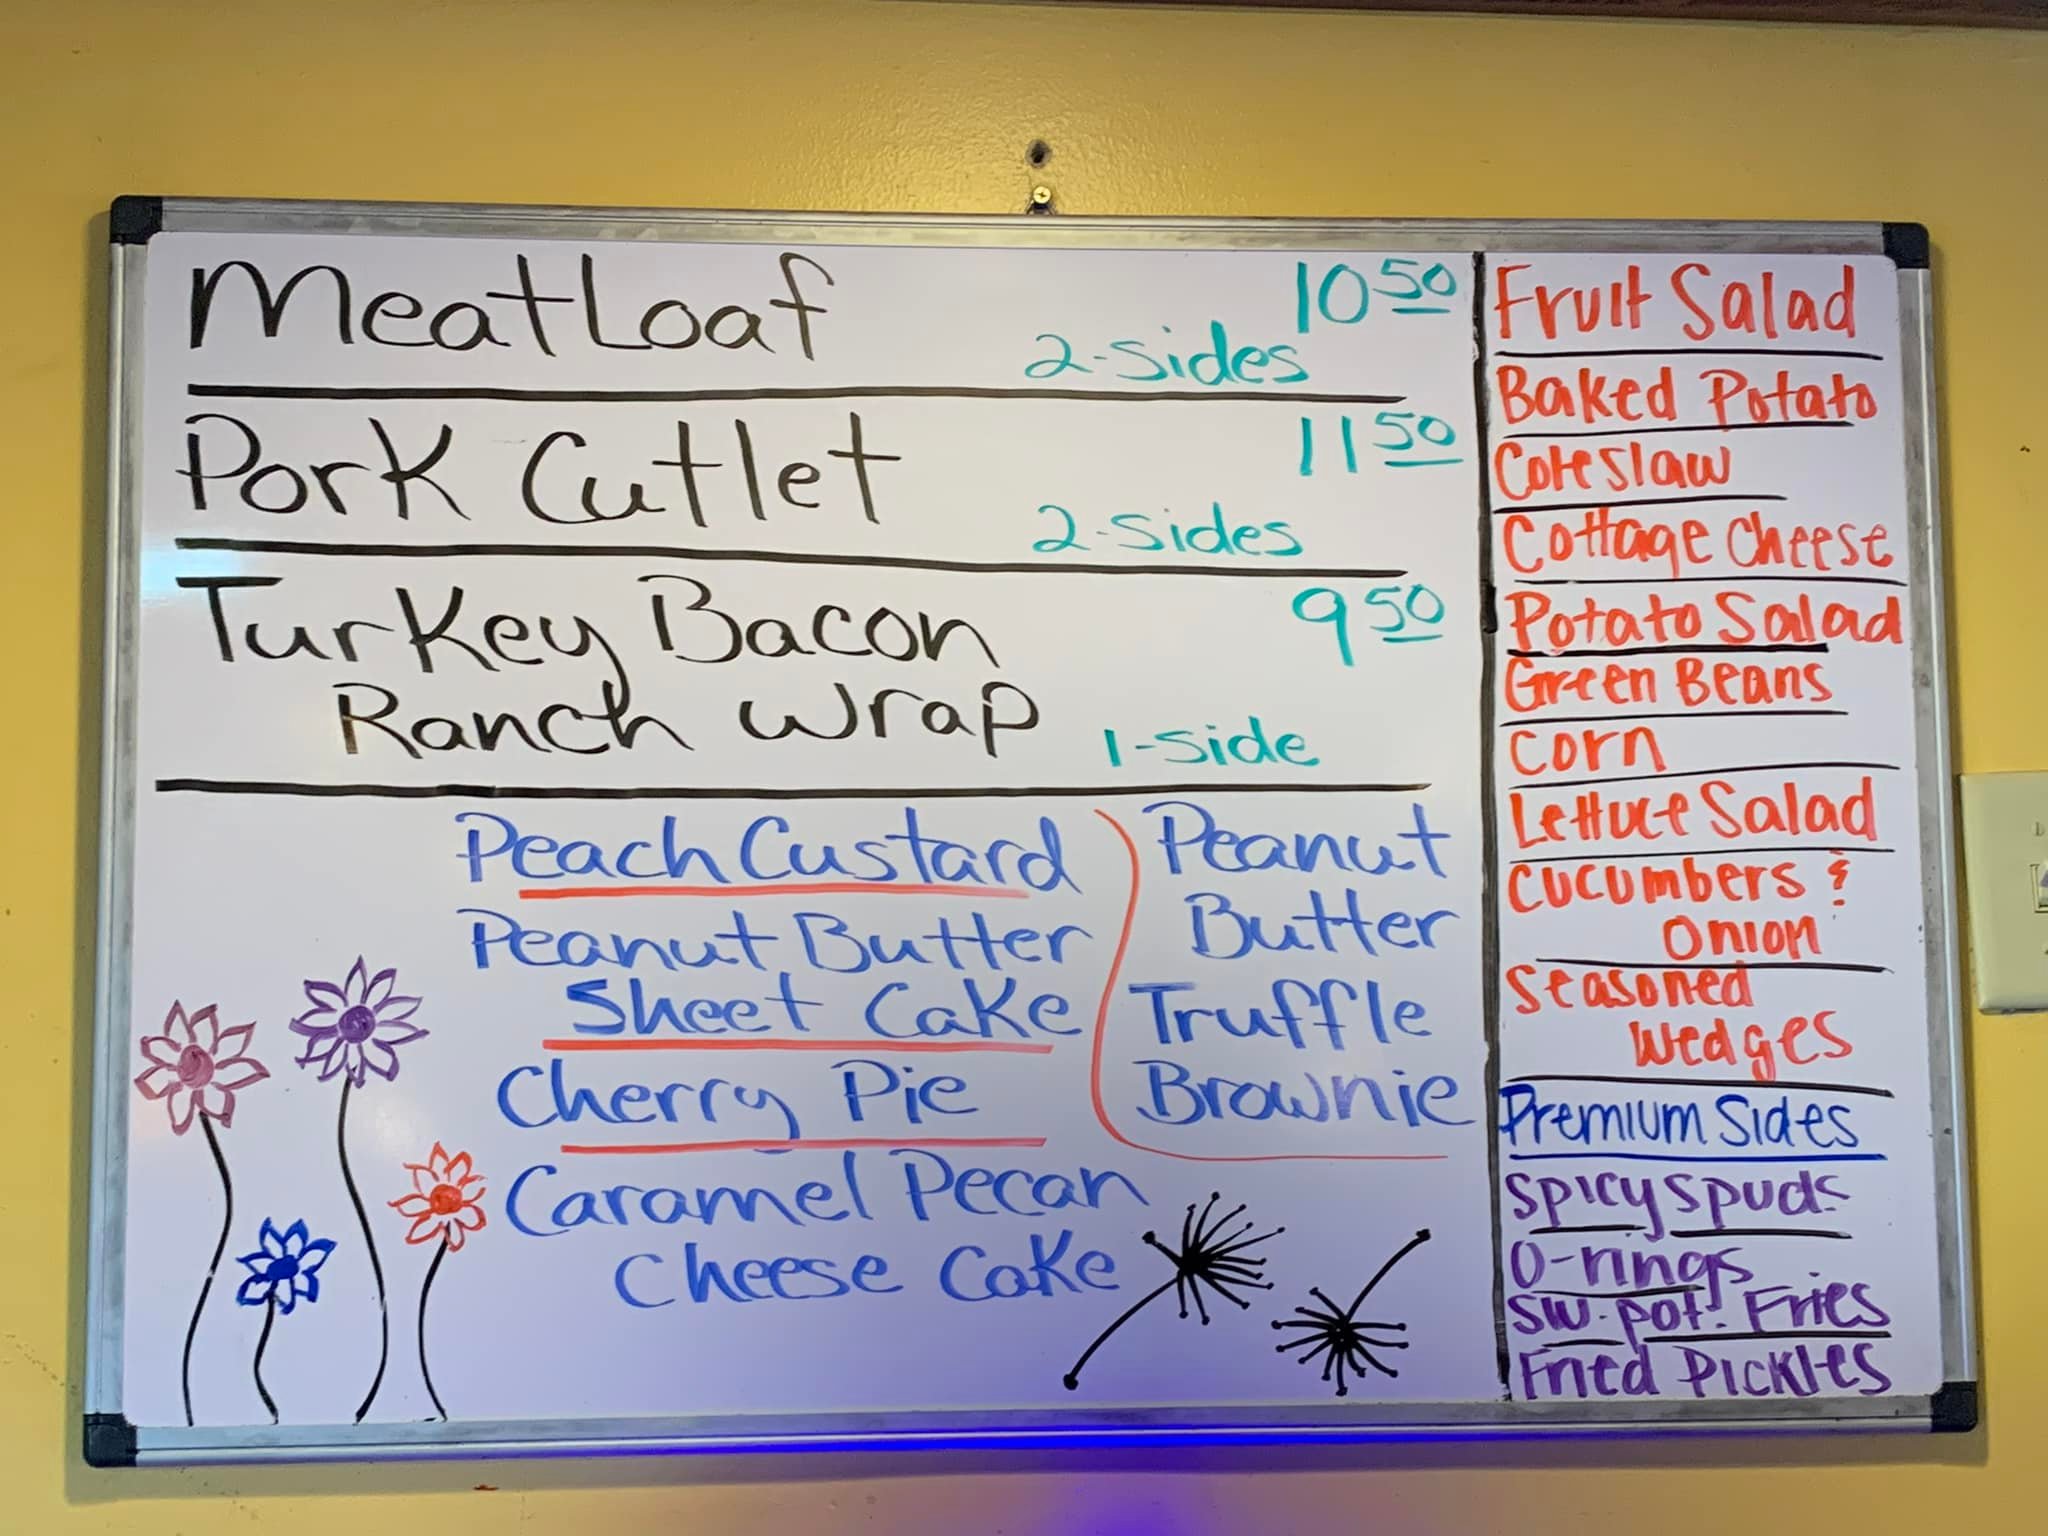 Meatloaf 10 50
2-sides
Pork Cutlet 11 50
2-sides
Turkey Bacon 9 50
Ranch Wrap 1-side
Peach Custard
Peanut Butter
Sheet Cake
Cherry Pie
Caramel Pecan
Cheese Cake
Peanut
Butter
Truffle
Brownie
Fruit Salad
Baked Potato
Coleslaw
Cottage Cheese
Potato Salad
Green Beans
Corn
Lettuce Salad
Cucumbers &
Onion
Seasoned
Wedges
Premium Sides
Spicy Spuds
O-rings
Sw. Pot. Fries
Fried Pickles